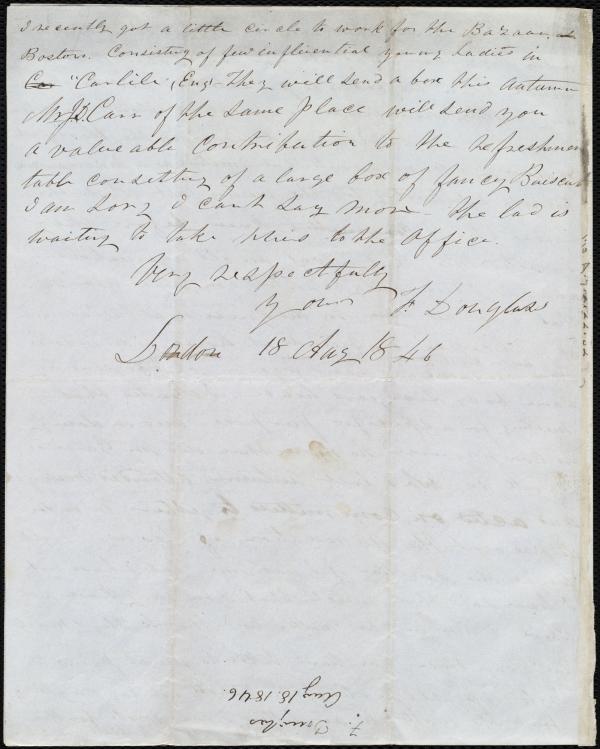 I recently got a little circle to work for the Bazaar,
Boston. Consisting of few influential young Ladies in
"Carlile, Eng. They will send a box this Autumn
Mr JD Carr of the same place will send you
a valueable contribution to the refreshmen
table consisting of a large box of fancy
I am Sory I cant Say more. The lad is
waiting to take this to the Office.
Very respectfully
yours F. Douglass
London 18 Aug 1846
F. Douglass
Aug 18. 1846.